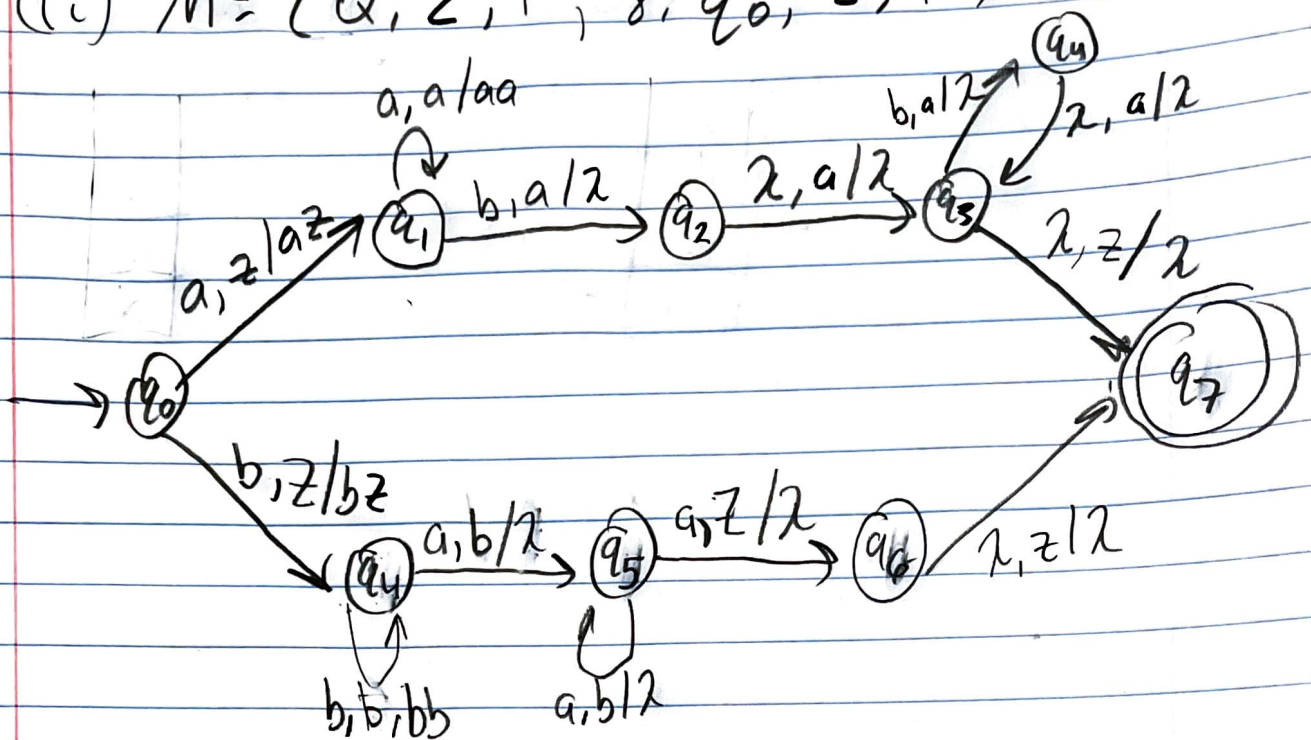 (i) M = (Q, Σ, Γ, δ, q₀,
q₄
a, a/aa
b, a/λ
λ, a/λ
a, z/az
q₁
b, a/λ
q₂
λ, a/λ
q₃
λ, z/λ
q₀
q₇
b, z/bz
q₄
a, b/λ
q₅
a, z/λ
q₆
λ, z/λ
b, b, bb
a, b/λ